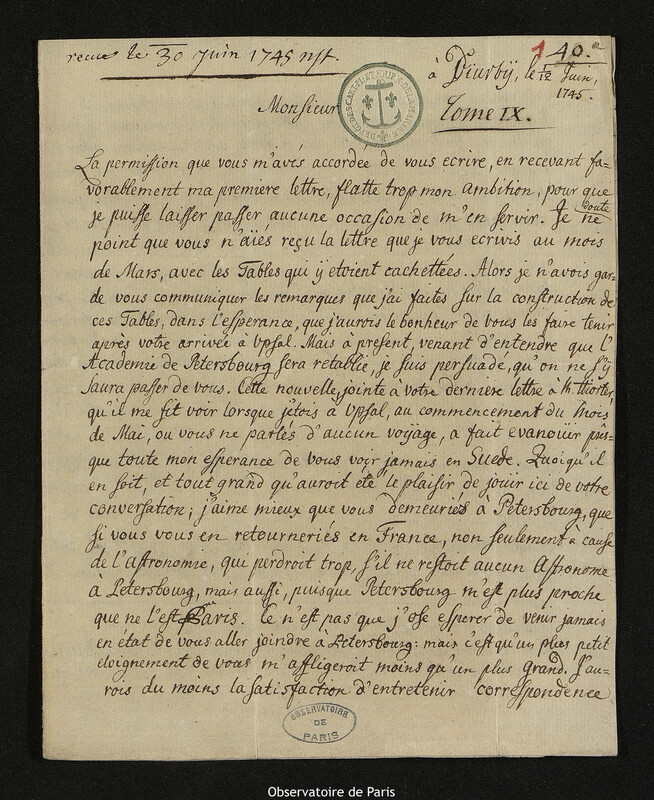 recue le 30 Juin 1745 nst.
1 40.a
à Diurbÿ, le 1/12 Juin,
1745.
Monsieur
Tome IX.
La permission que vous m'avés accordée de vous ecrire, en recevant fa-
vorablement ma premiere lettre, flatte trop mon ambition, pour que
je puisse laisser passer aucune occasion de m'en servir. Je ne doute
point que vous n'aiés reçu la lettre que je vous ecrivis au mois
de Mars, avec les Tables qui ÿ etoient cachettées. Alors je n'avois gar-
de vous communiquer les remarques que j'ai faites sur la construction de
ces Tables, dans l'esperance, que j'aurois le bonheur de vous les faire tenir
après votre arrivée à Upsal. Mais à present, venant d'entendre que l'
Academie de Petersbourg sera retablie, je suis persuade, qu'on ne s'ÿ
saura passer de vous. Cette nouvelle, jointe à votre derniere lettre à M. Hiorter,
qu'il me fit voir lorsque j'etois à Upsal, au commencement du Mois
de Mai, ou vous ne parlés d'aucun voÿage, a fait evanoüir pres-
que toute mon esperance de vous voir jamais en Suede. Quoiqu'il
en soit, et tout grand qu'auroit été le plaisir de jouir ici de votre
conversation; j'aime mieux que vous demeuriés à Petersbourg, que
si vous vous en retourneriés en France, non seulement à cause
de l'astronomie, qui perdroit trop, s'il ne restoit aucun Astronome
à Petersbourg, mais aussi, puisque Petersbourg m'est plus proche
que ne l'est Paris. Ce n'est pas que j'ose esperer de venir jamais
en état de vous aller joindre à Petersbourg: mais c'est qu'un plus petit
eloignement de vous m'affligeroit moins qu'un plus grand. J'au-
rois du moins la satisfaction d'entretenir correspondence
OBSERVATOIRE
DE
PARIS
Observatoire de Paris